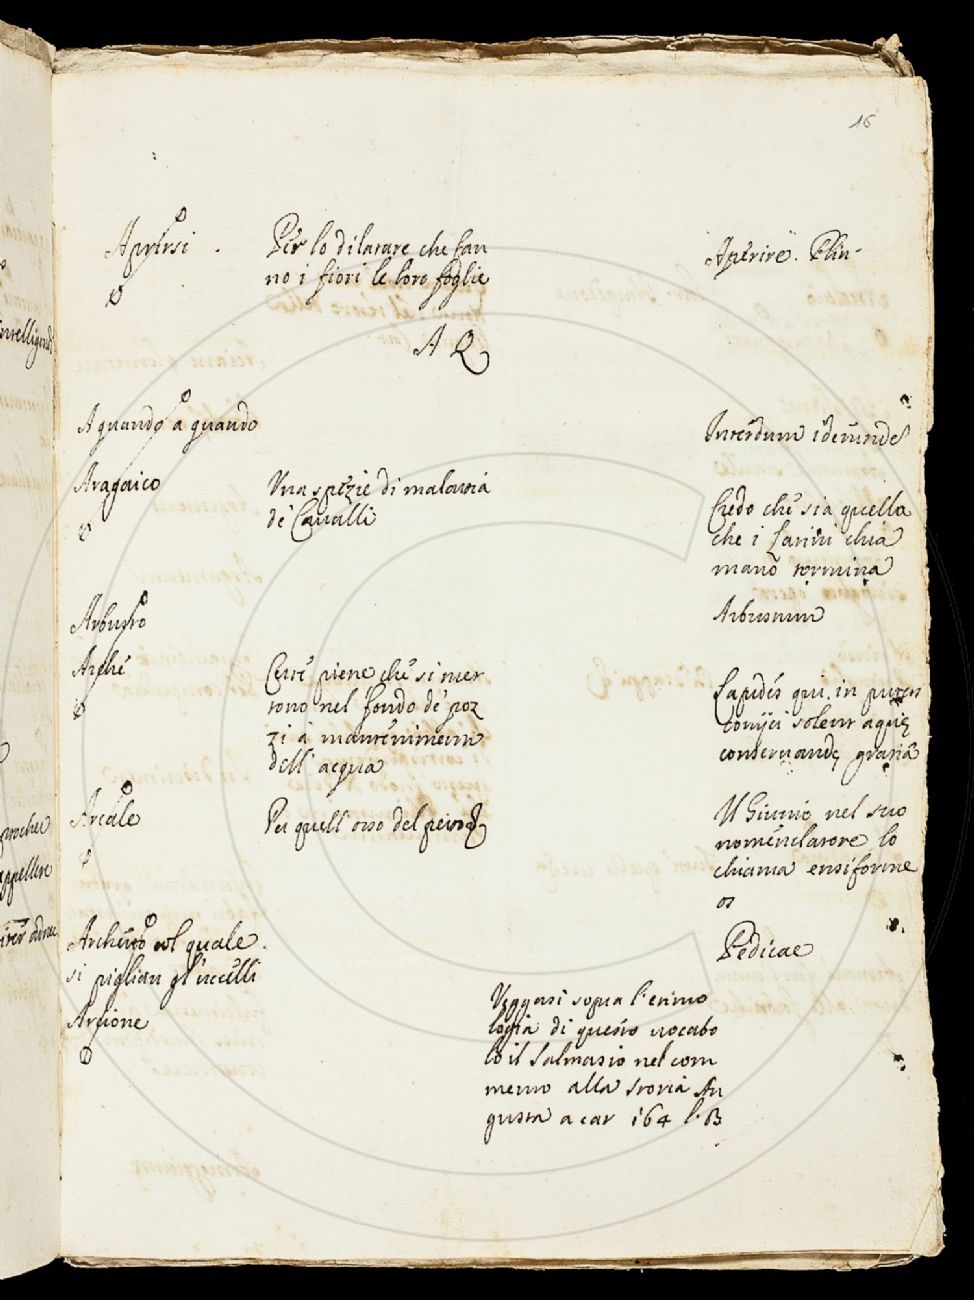 16
Aprirsi
Per lo dilatare che fan
no i fiori le loro foglie
Aperire. Plin-
A Q
A quando a quando
Interdum identidem
Aragaico
Una spezie di malattia
de' Cavalli
Credo che sia quella
che i Latini chia
mano tormina
Arbusto
Arbustum
Arche
Certe pietre che si met
tono nel fondo de' poz
zi a mantenimento
dell' acqua
Lapides qui in
conijci solent aquę
conservandę gratia
Arcale
Per quell' osso del petto
Il Giunio nel suo
nomenclatore lo
chiama ensiforme
os
Archetto col quale
si piglian gl' uccelli
Pedicae
Arcione
Veggasi sopra l' etimo
logia di questo vocabo
lo il Salmasio nel com
mento alla storia Au
gusta a car 164 l. B